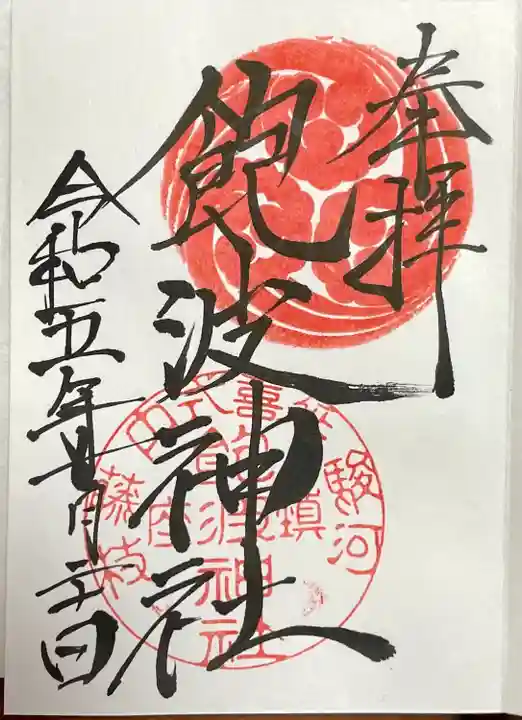 奉拝
飽波神社
令和五年五月二十日
駿河
鎮座
藤枝
式内
飽波神社